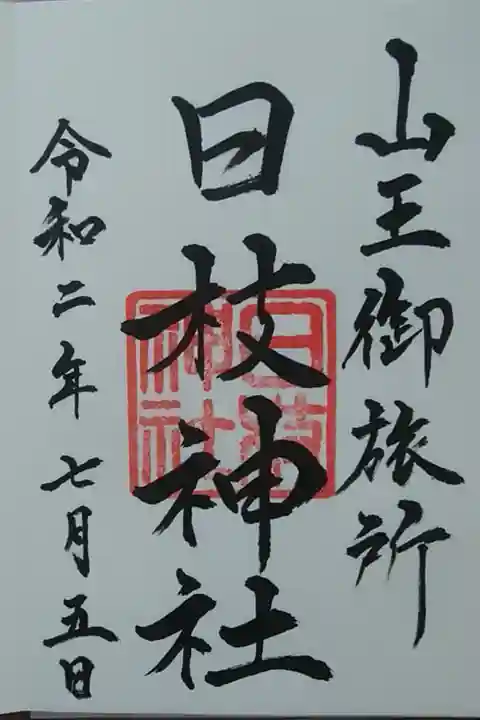 山王御旅所
日枝神社
令和二年七月五日